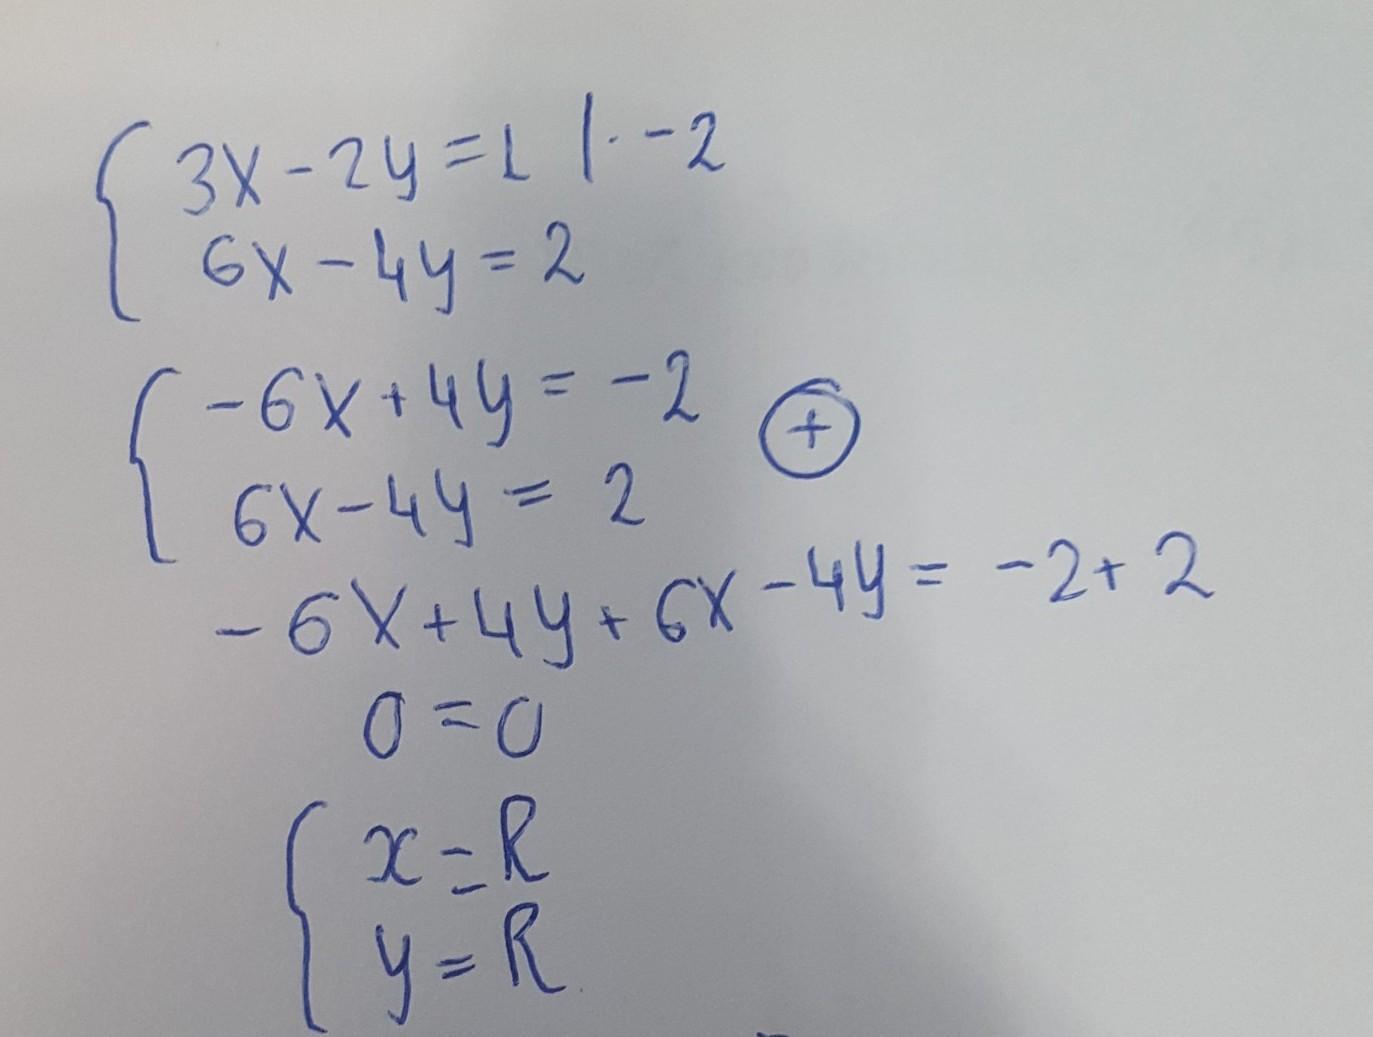 { 3x - 2y = 1 | · -2
6x - 4y = 2
{ -6x + 4y = -2
6x - 4y = 2 ⊕
-6x + 4y + 6x - 4y = -2 + 2
0 = 0
{ x = R
y = R